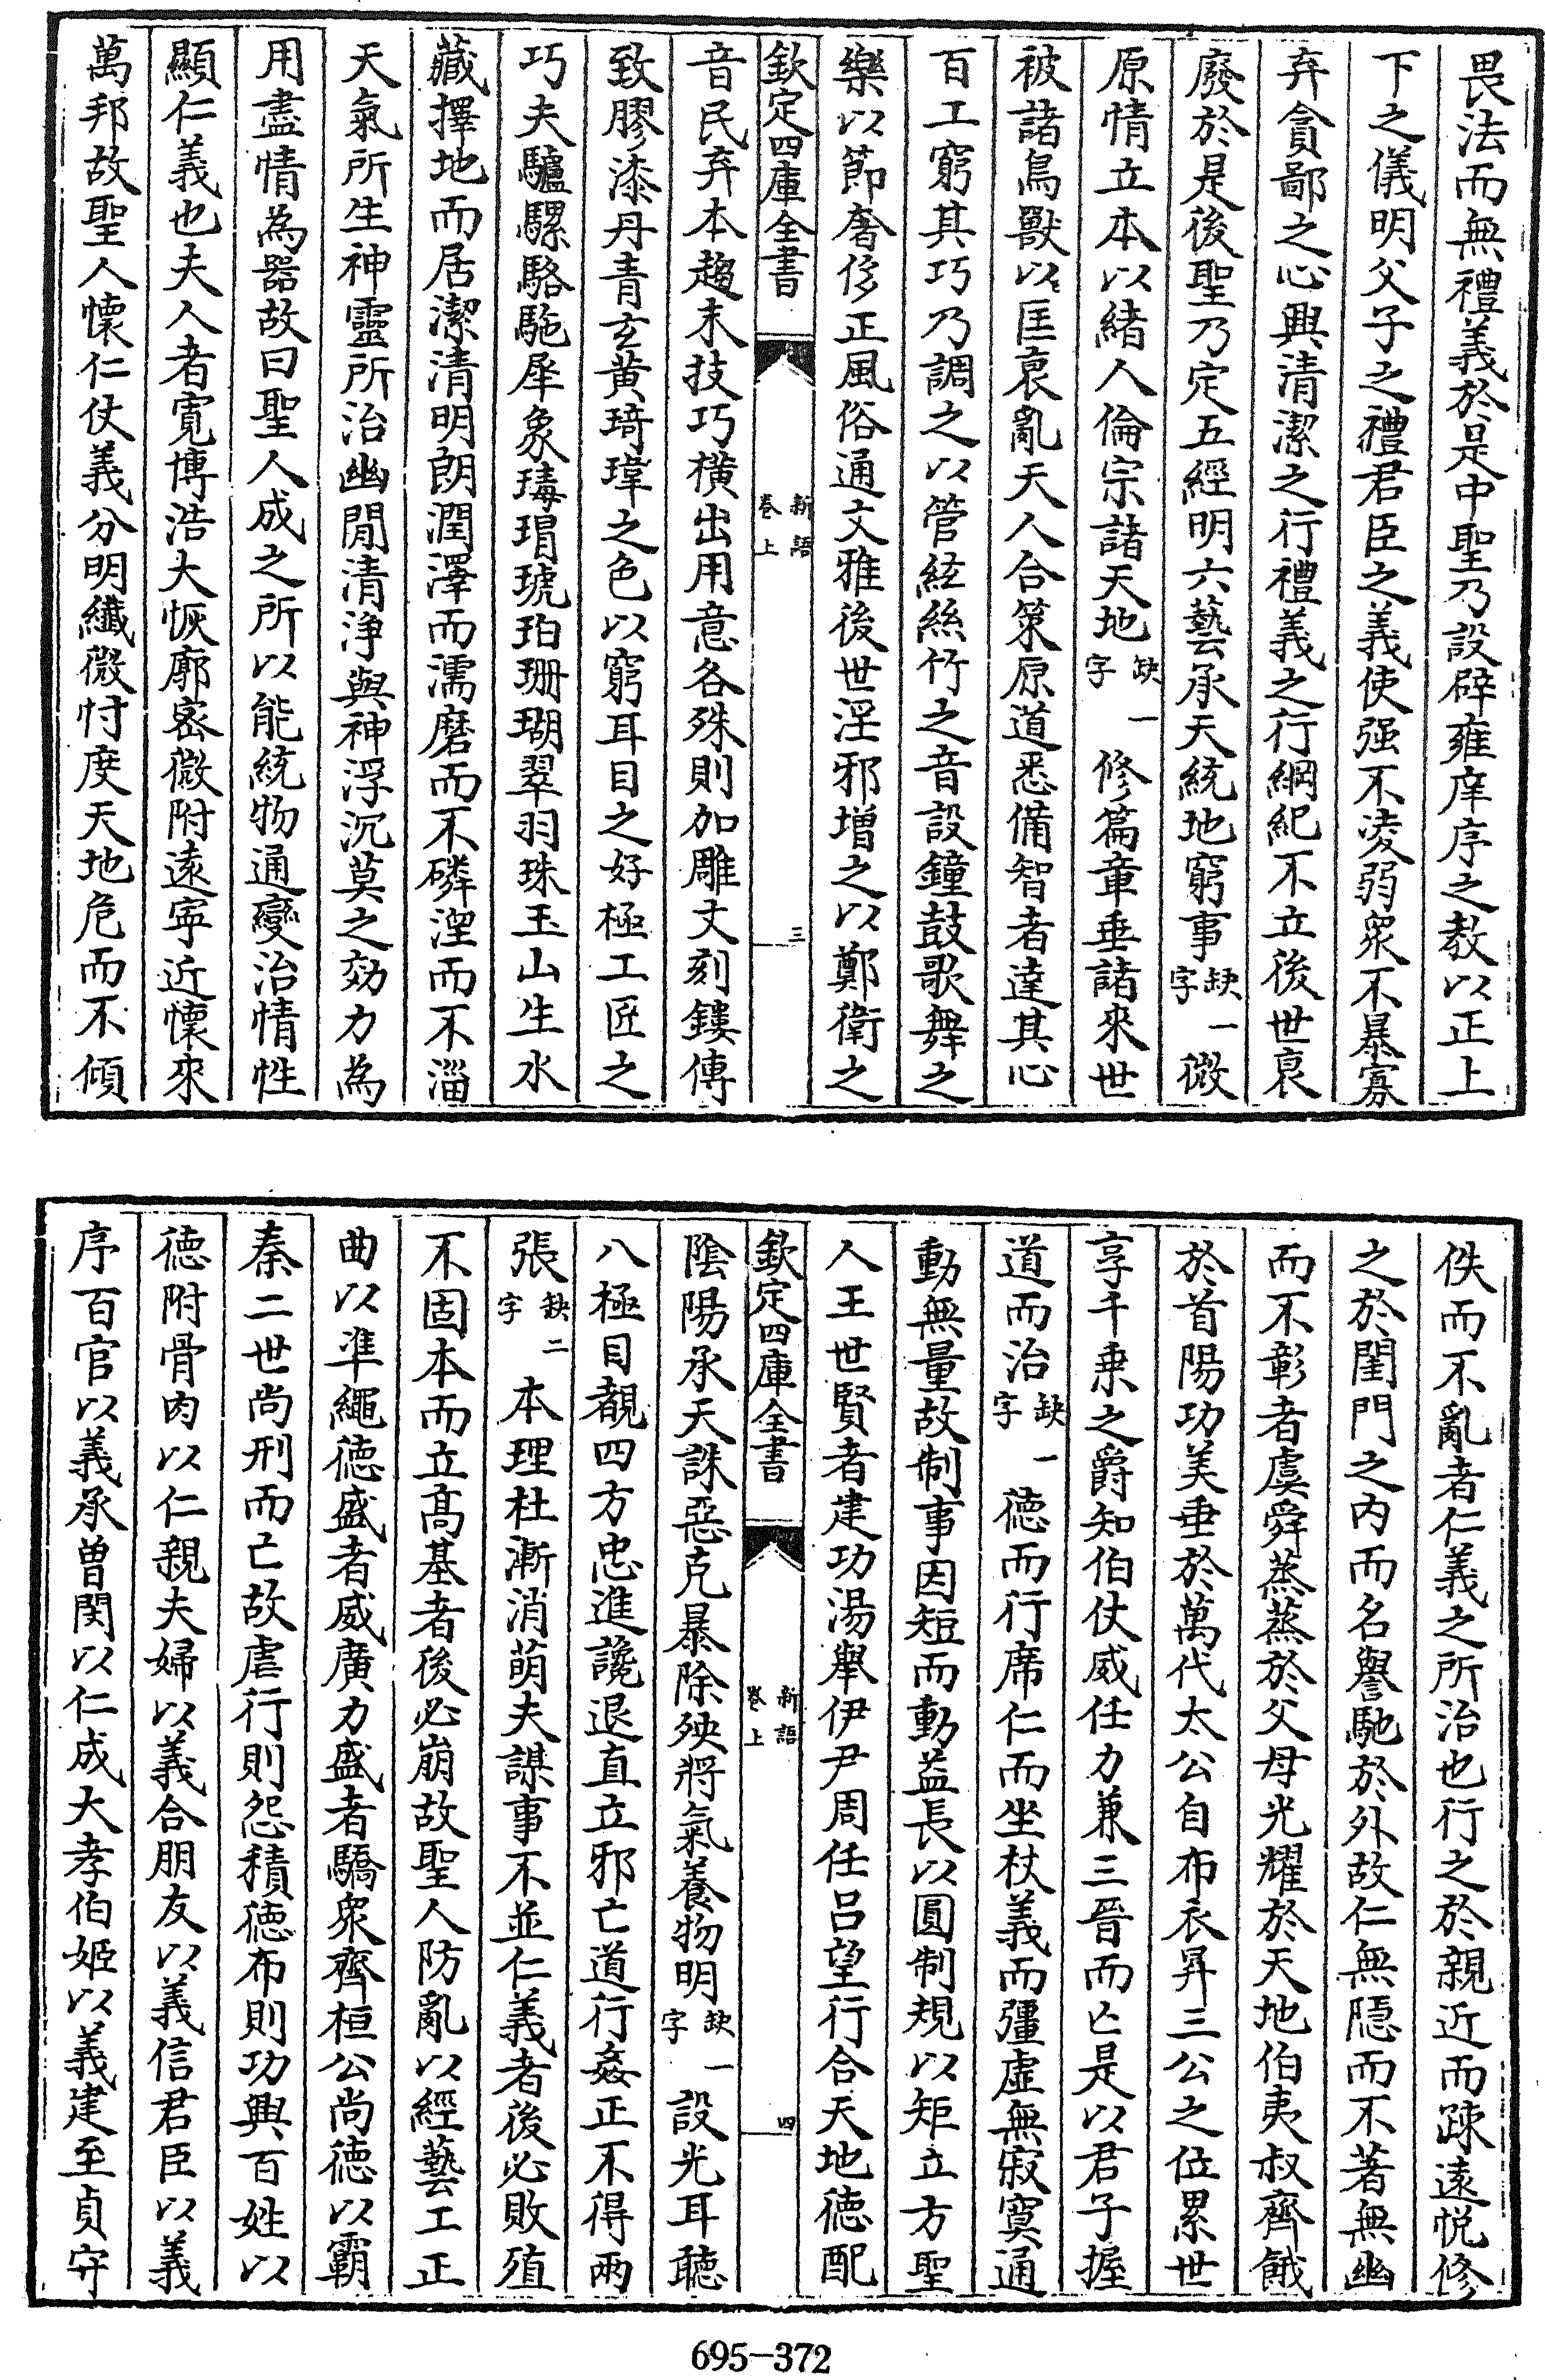 畏法而無禮義於是中聖乃設辟雍庠序之教以正上
下之儀明父子之禮君臣之義使强不凌弱衆不暴寡
弃貪鄙之心興清潔之行禮義之行綱紀不立後世衰
廢於是後聖乃定五經明六藝承天統地窮事缺一字微
原情立本以緒人倫宗諸天地缺一字修篇章垂諸來世
被諸鳥獸以匡衰亂天人合策原道悉備智者達其心
百工窮其巧乃調之以管絃絲竹之音設鐘鼓歌舞之
樂以節奢侈正風俗通文雅後世淫邪增之以鄭衛之
欽定四庫全書 新語 卷上 三
音民弃本趨末技巧橫出用意各殊則加雕文刻鏤傳
致膠漆丹青玄黄琦瑋之色以窮耳目之好極工匠之
巧夫驢騾駱駞犀象瑇瑁琥珀珊瑚翠羽珠玉山生水
藏擇地而居潔清明朗潤澤而濡磨而不磷湼而不淄
天氣所生神靈所治幽閒清浄與神浮沉莫之効力為
用盡情為器故曰聖人成之所以能統物通變治情性
顯仁義也夫人者寛博浩大恢廓宻微附遠寜近懷來
萬邦故聖人懷仁仗義分明纖微忖度天地危而不傾
佚而不亂者仁義之所治也行之於親近而疎遠悦修
之於閨門之内而名譽馳於外故仁無隱而不著無幽
而不彰者虞舜蒸蒸於父母光耀於天地伯夷叔齊餓
於首陽功美垂於萬代太公自布衣昇三公之位累世
享千乘之爵知伯仗威任力兼三晉而亡是以君子握
道而治缺一字德而行席仁而坐杖義而彊虚無寂寞通
動無量故制事因短而動益長以圓制規以矩立方聖
人王世賢者建功湯舉伊尹周任呂望行合天地德配
欽定四庫全書 新語 卷上 四
陰陽承天誅惡克暴除殃將氣養物明缺一字設光耳聽
八極目覩四方忠進讒退直立邪亡道行姦正不得兩
張缺二字本理杜漸消萌夫謀事不並仁義者後必敗殖
不固本而立高基者後必崩故聖人防亂以經藝工正
曲以凖繩德盛者威廣力盛者驕衆齊桓公尚德以霸
秦二世尚刑而亡故虐行則怨積德布則功興百姓以
德附骨肉以仁親夫婦以義合朋友以義信君臣以義
序百官以義承曽閔以仁成大孝伯姬以義建至貞守
695-372